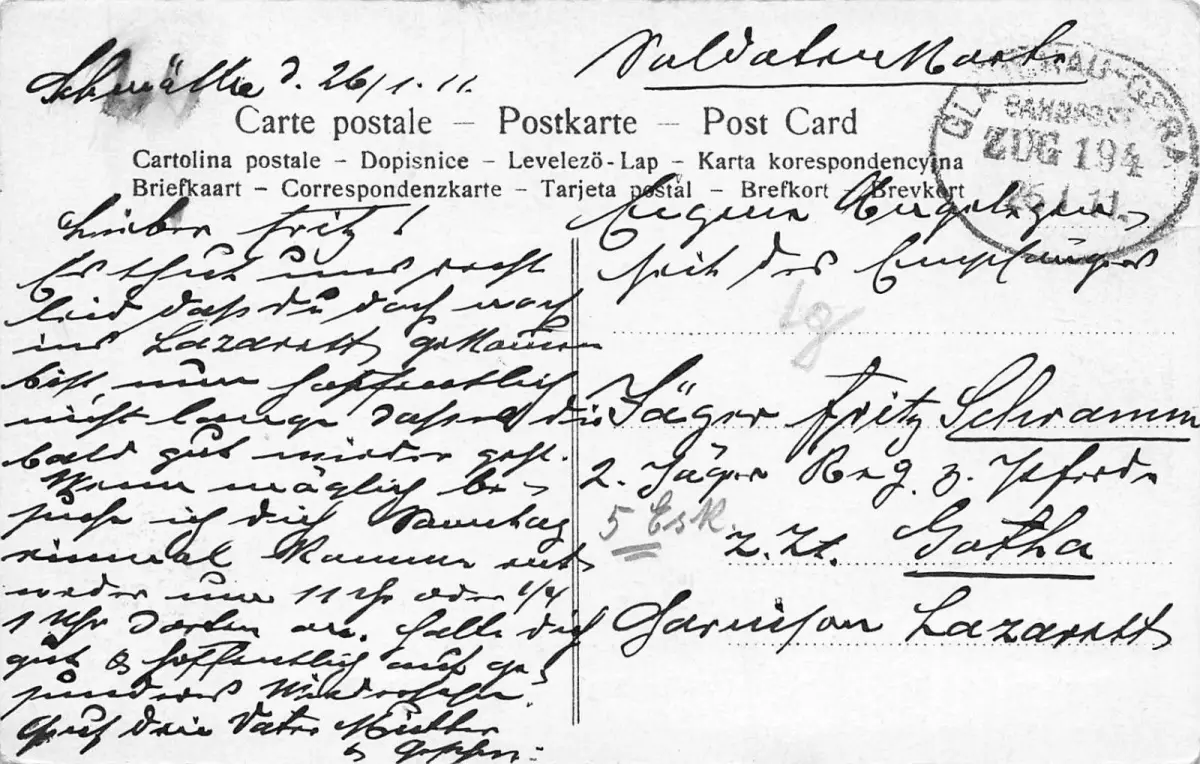 Schmölln d. 26/1. 11.
Soldatenkarte
GLAUCHAU-GERA
BAHNPOST
ZUG 194
26.1.11.
Carte postale – Postkarte – Post Card
Cartolina postale – Dopisnice – Levelezö-Lap – Karta korespondencyjna
Briefkaart – Correspondenzkarte – Tarjeta postal – Brefkort – Brevkort
Lieber Fritz!
Es thut uns recht
leid daß du doch noch
ins Lazarett gekommen
bist, nun hoffentlich
nicht lange daß es dir
bald gut wieder geht.
Wenn möglich be-
suche ich dich Sonntag
einmal komme ent-
weder um 11 Uhr oder 1/4
1 Uhr dorten an. Halte dich
gut & hoffentlich auf ge-
sunderes Wiedersehn.
Gruß dein Vater Mutter
& Geschw:
Eigene Angelegen-
heit des Empfängers
Lg
Jäger Fritz Schramm
2. Jäger Reg. z. Pferde
5 Esk.
z. Zt. Gotha
Garnison Lazarett